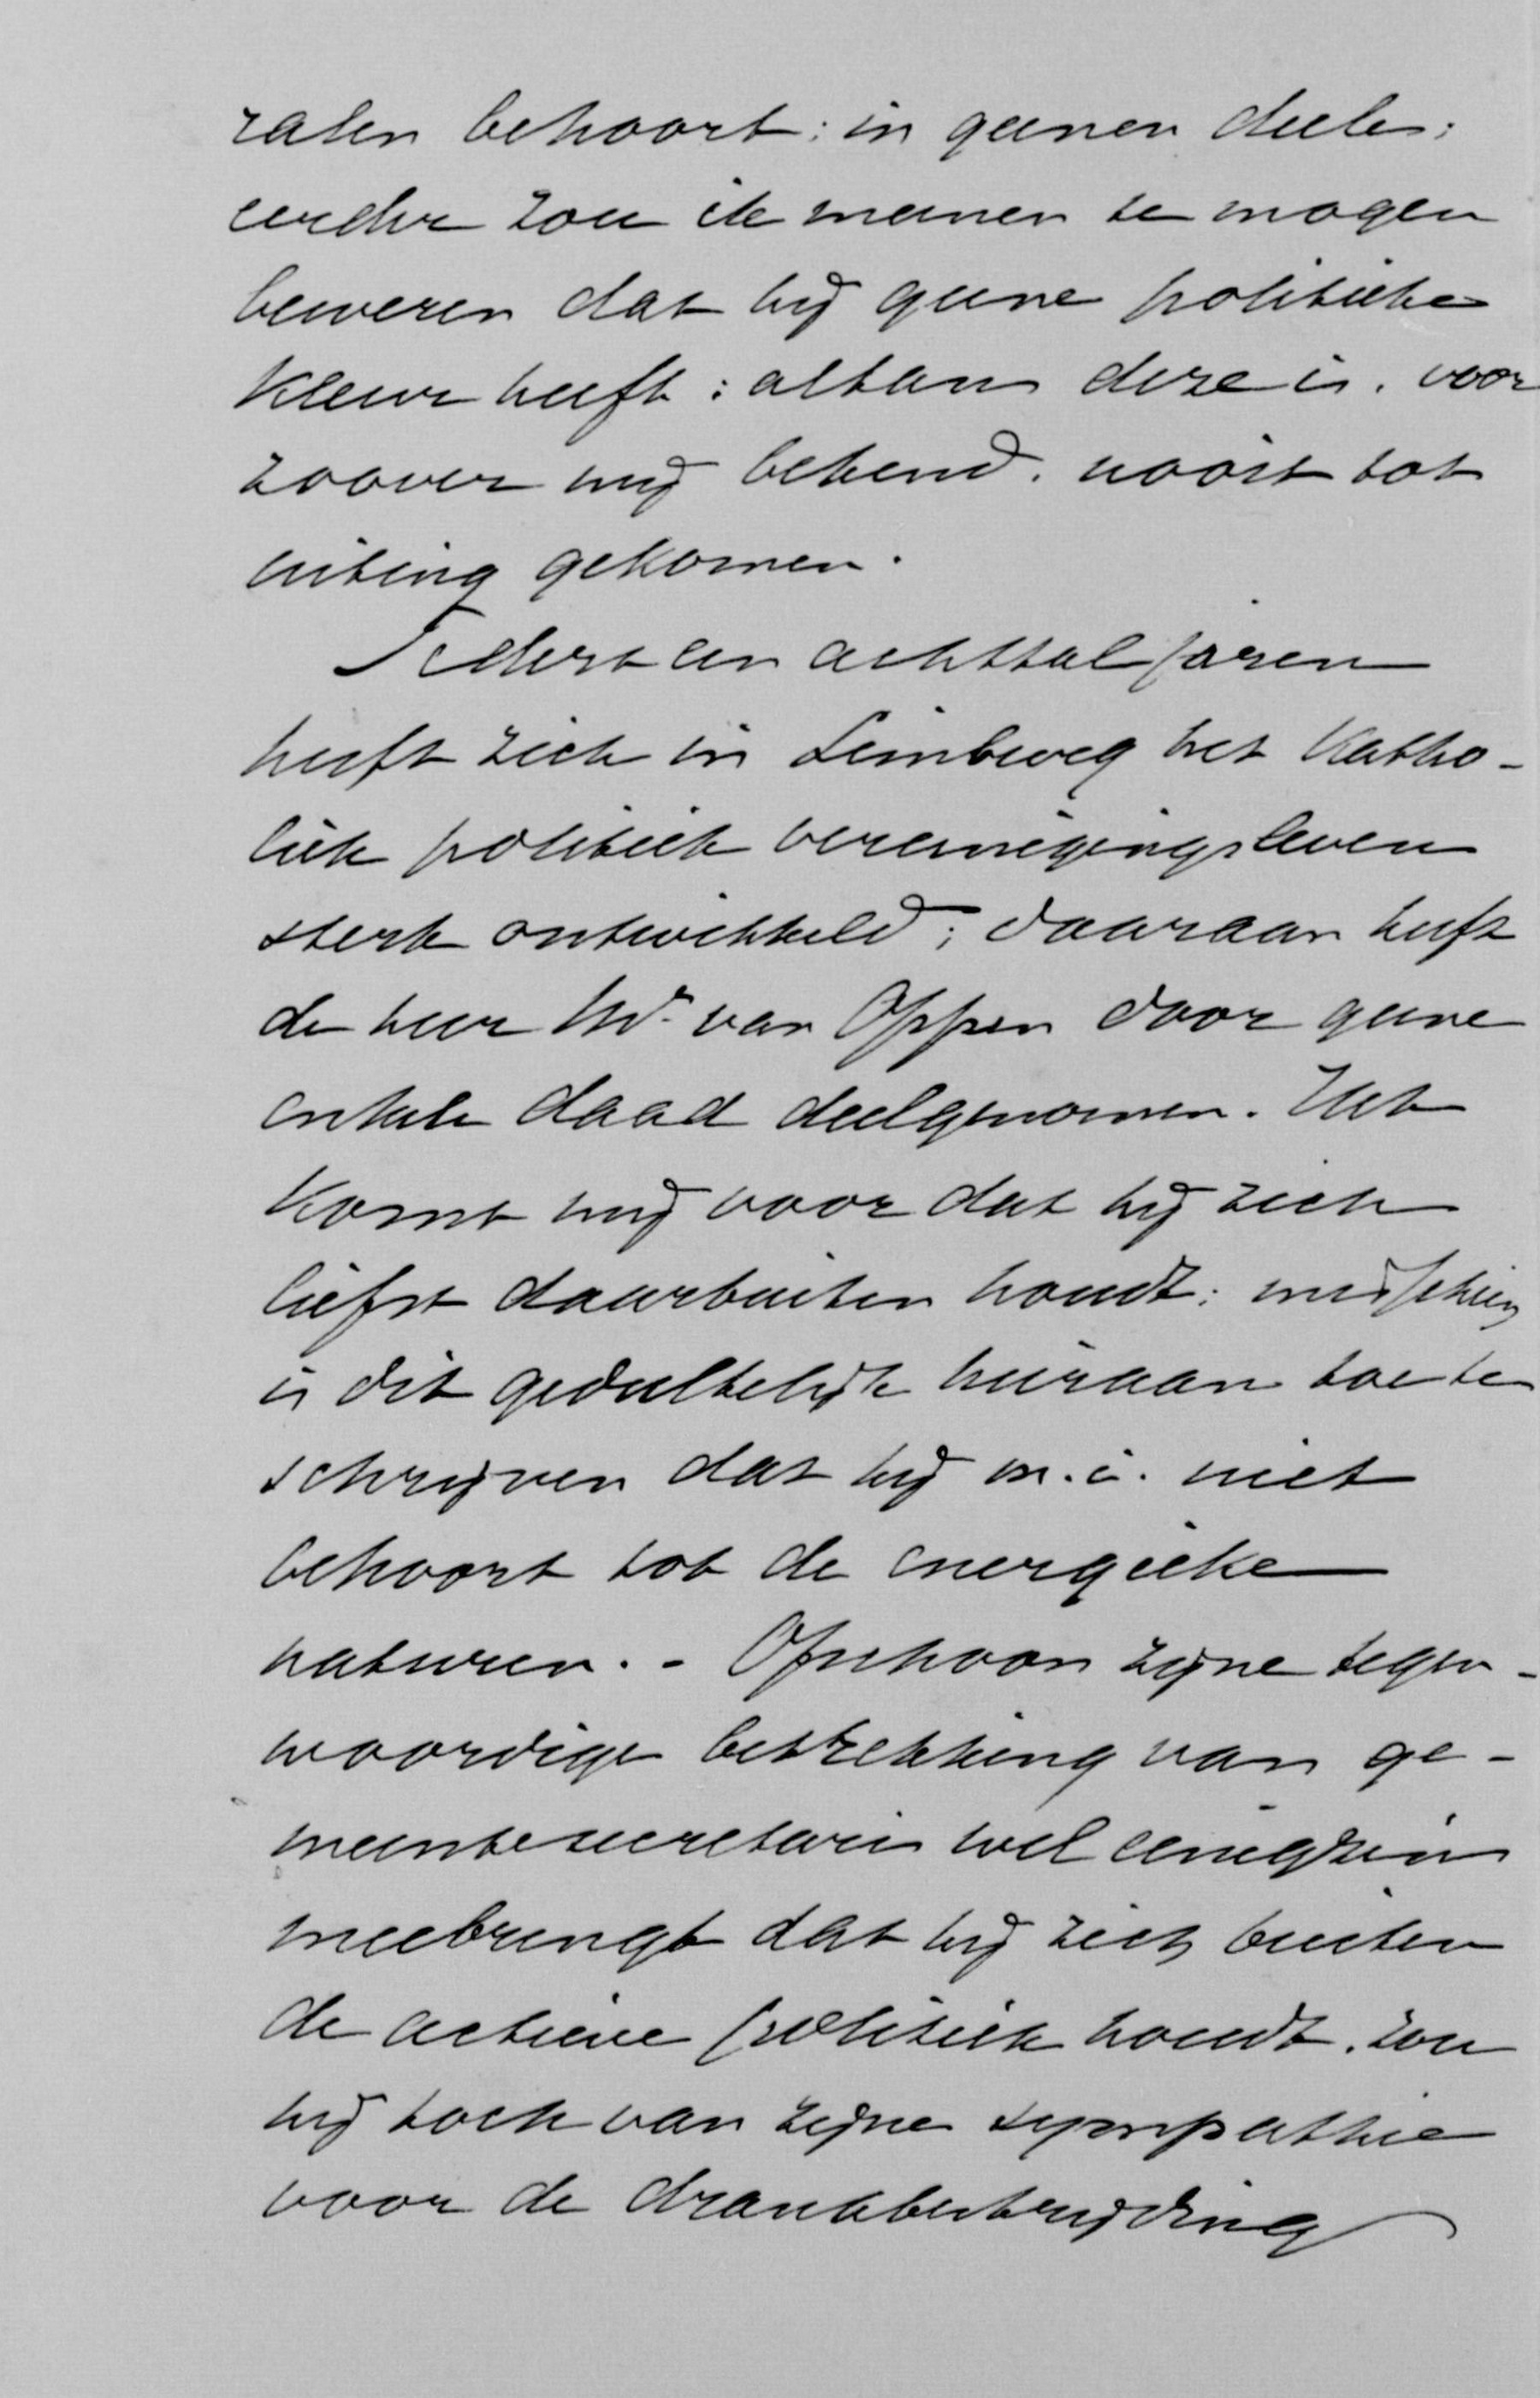 ralen behoort: in geenen deele;
eerder zou ik meenen te mogen
beweren dat hij geene politieke
kleur heeft: althans deze is, voor
zoover mij bekend, nooit tot
uiting gekomen.
Sedert een achttal jaren
heeft zich in Limburg het Katho-
liek politiek vereenigingsleven
sterk ontwikkeld; daaraan heeft
de heer Mr. van Oppen door geene
enkele daad deelgenomen. Het
komt mij voor dat hij zich
liefst daarbuiten houdt: misschien
is dit gedeeltelijk hieraan toe te
schrijven dat hij m.i. niet
behoort tot de energieke
naturen. - Ofschoon zijne tegen-
woordige betrekking van ge-
meentesecretaris wel eenigszins
meebrengt dat hij zich buiten
de actieve politiek houdt, zou
hij toch van zijne sympathie
voor de drankbestrijding